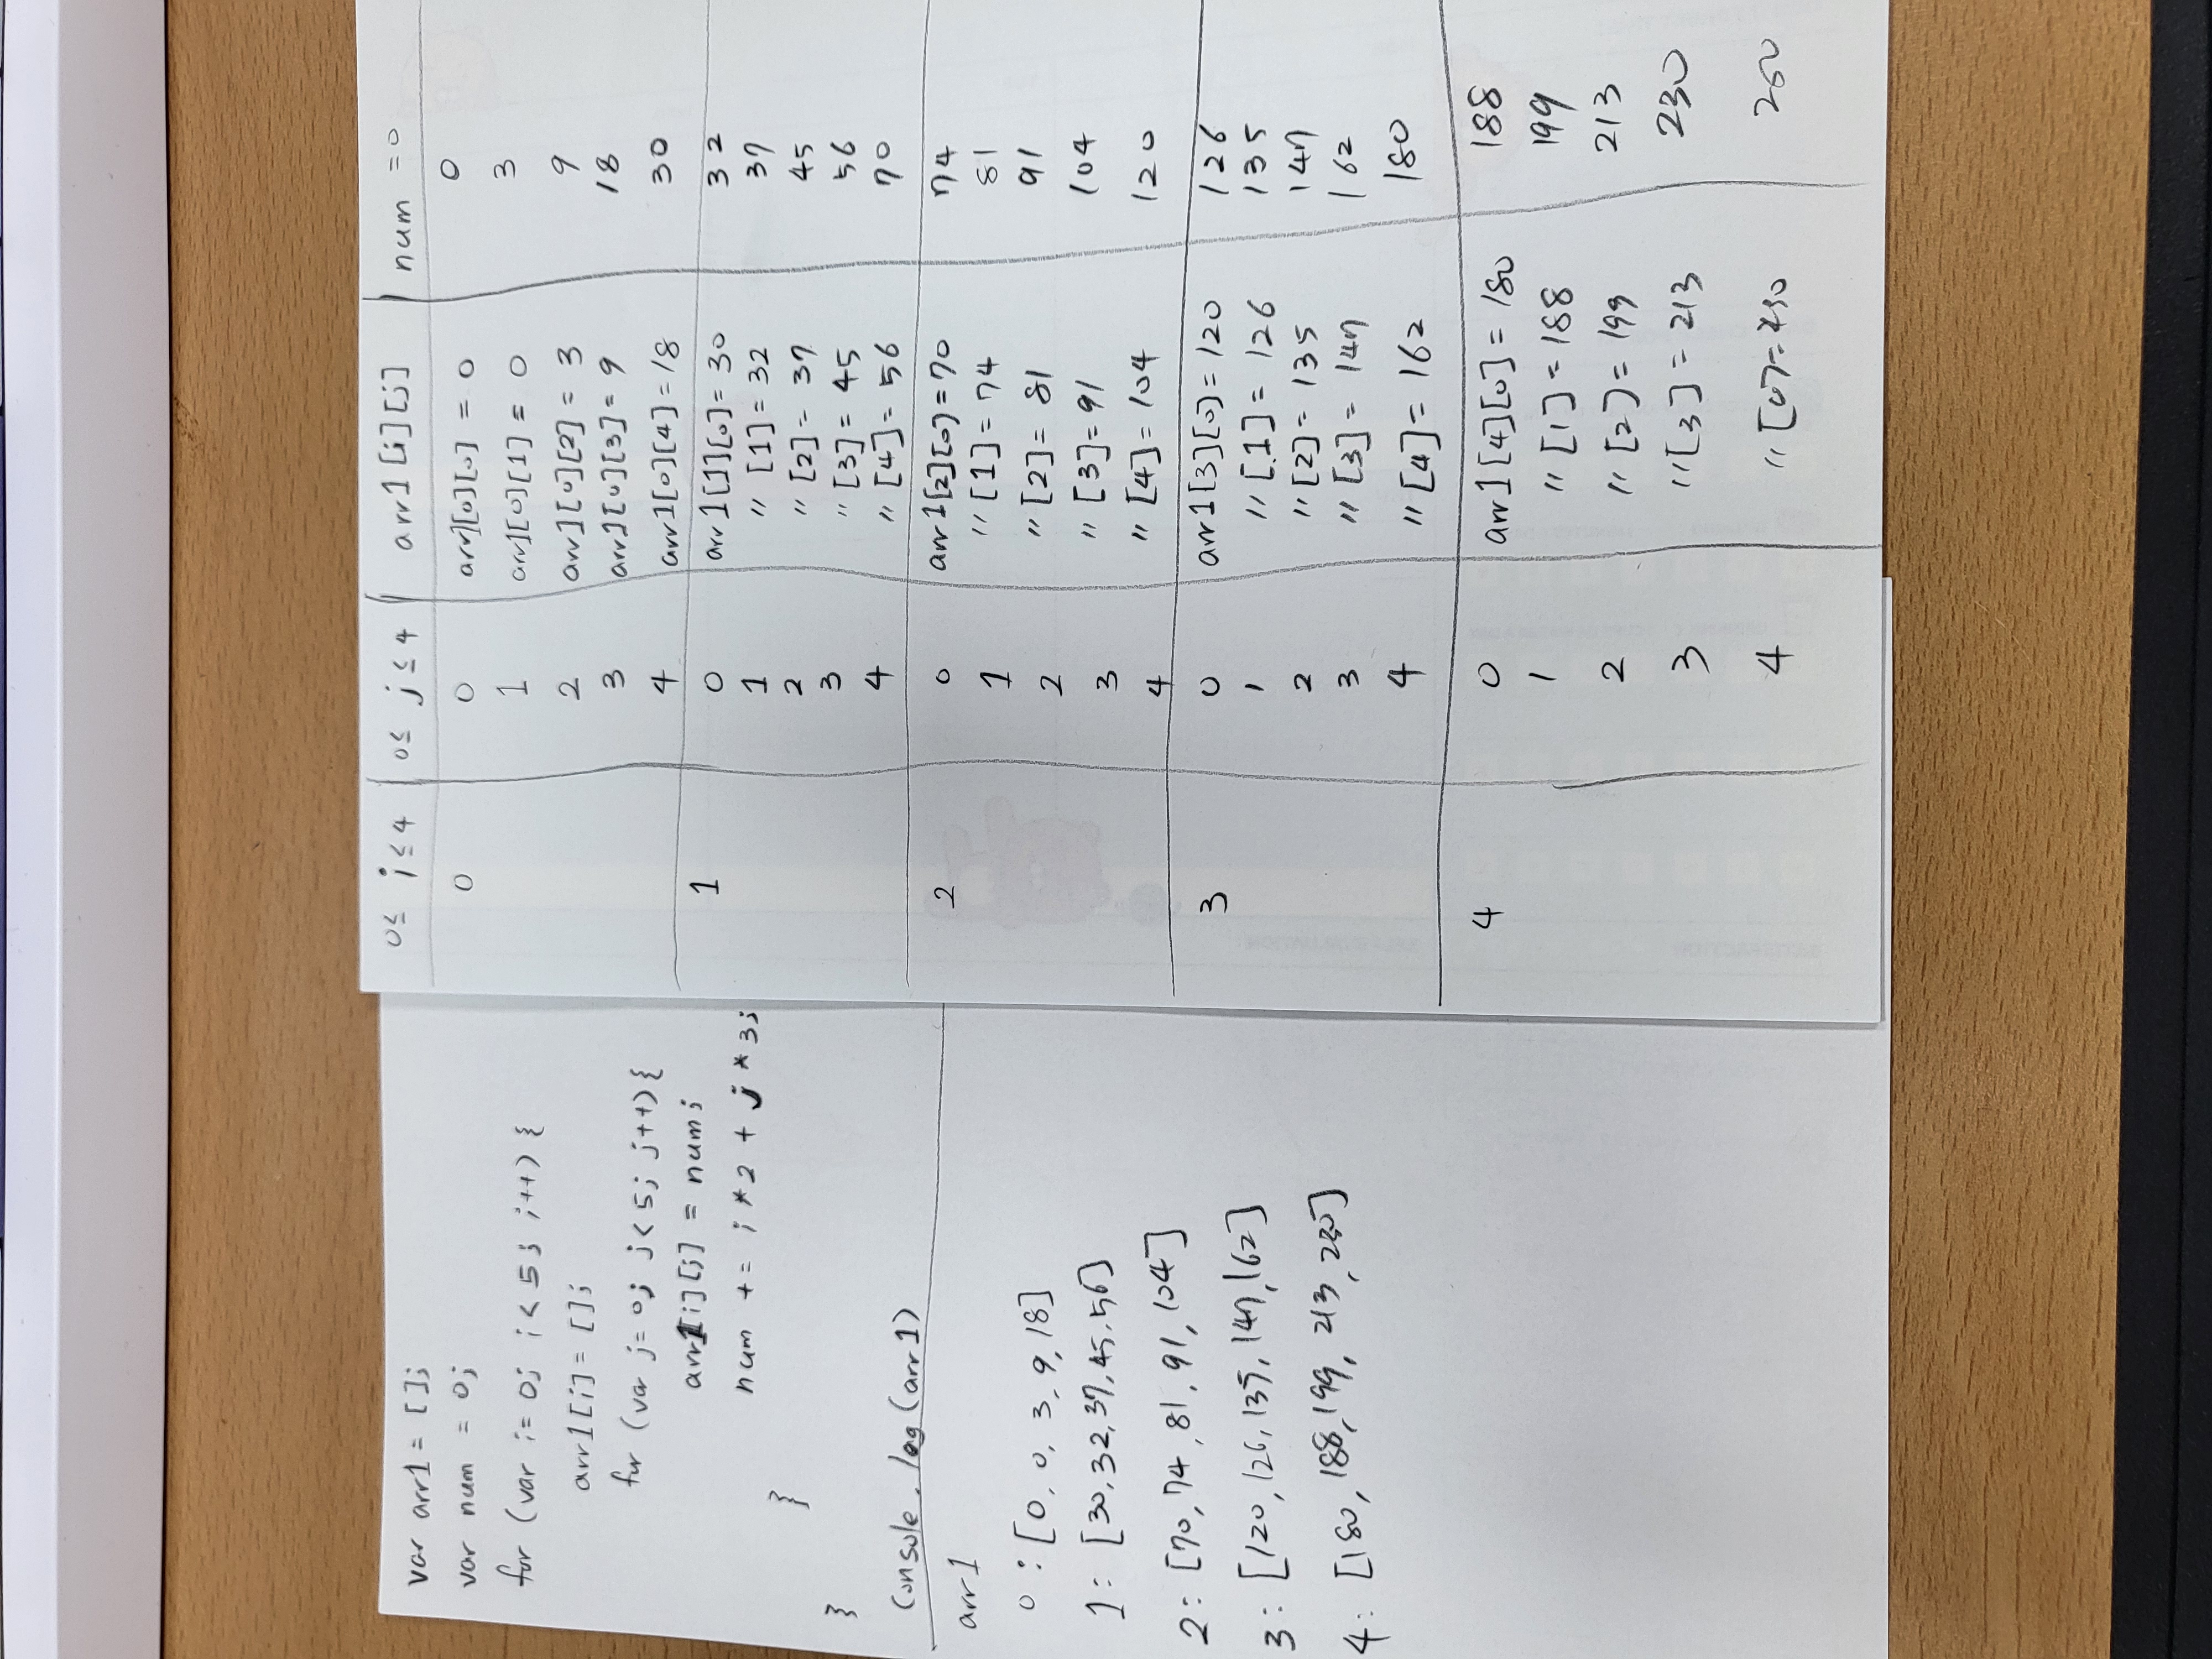 var arr1 = [];
var num = 0;
for (var i= 0; i<5; i++) {
arr1[i]= [];
for (var j= 0; j<5; j++){
arr1[i][j] = num;
num += i*2 + j*3;
}
}
console.log(arr1)
arr1
0:[0, 0, 3, 9, 18]
1: [30, 32, 37, 45, 56]
2: [70, 74, 81, 91, 104]
3: [120, 126, 135, 147, 162]
4: [180, 188, 199, 213, 230]
0≤ i≤4 0≤ j≤4 arr1[i][j] num =0
0 0 arr1[0][0] = 0 0
1 arr1[0][1] = 0 3
2 arr1[0][2] = 3 9
3 arr1[0][3] = 9 18
4 arr1[0][4] = 18 30
1 0 arr1[1][0] = 30 32
1 〃 [1] = 32 37
2 〃 [2] = 37 45
3 〃 [3] = 45 56
4 〃 [4] = 56 70
2 0 arr1[2][0] = 70 74
1 〃 [1] = 74 81
2 〃 [2] = 81 91
3 〃 [3] = 91 104
4 〃 [4] = 104 120
3 0 arr1[3][0] = 120 126
1 〃 [1] = 126 135
2 〃 [2] = 135 147
3 〃 [3] = 147 162
4 〃 [4] = 162 180
4 0 arr1[4][0] = 180 188
1 〃 [1] = 188 199
2 〃 [2] = 199 213
3 〃 [3] = 213 230
4 〃 = 230